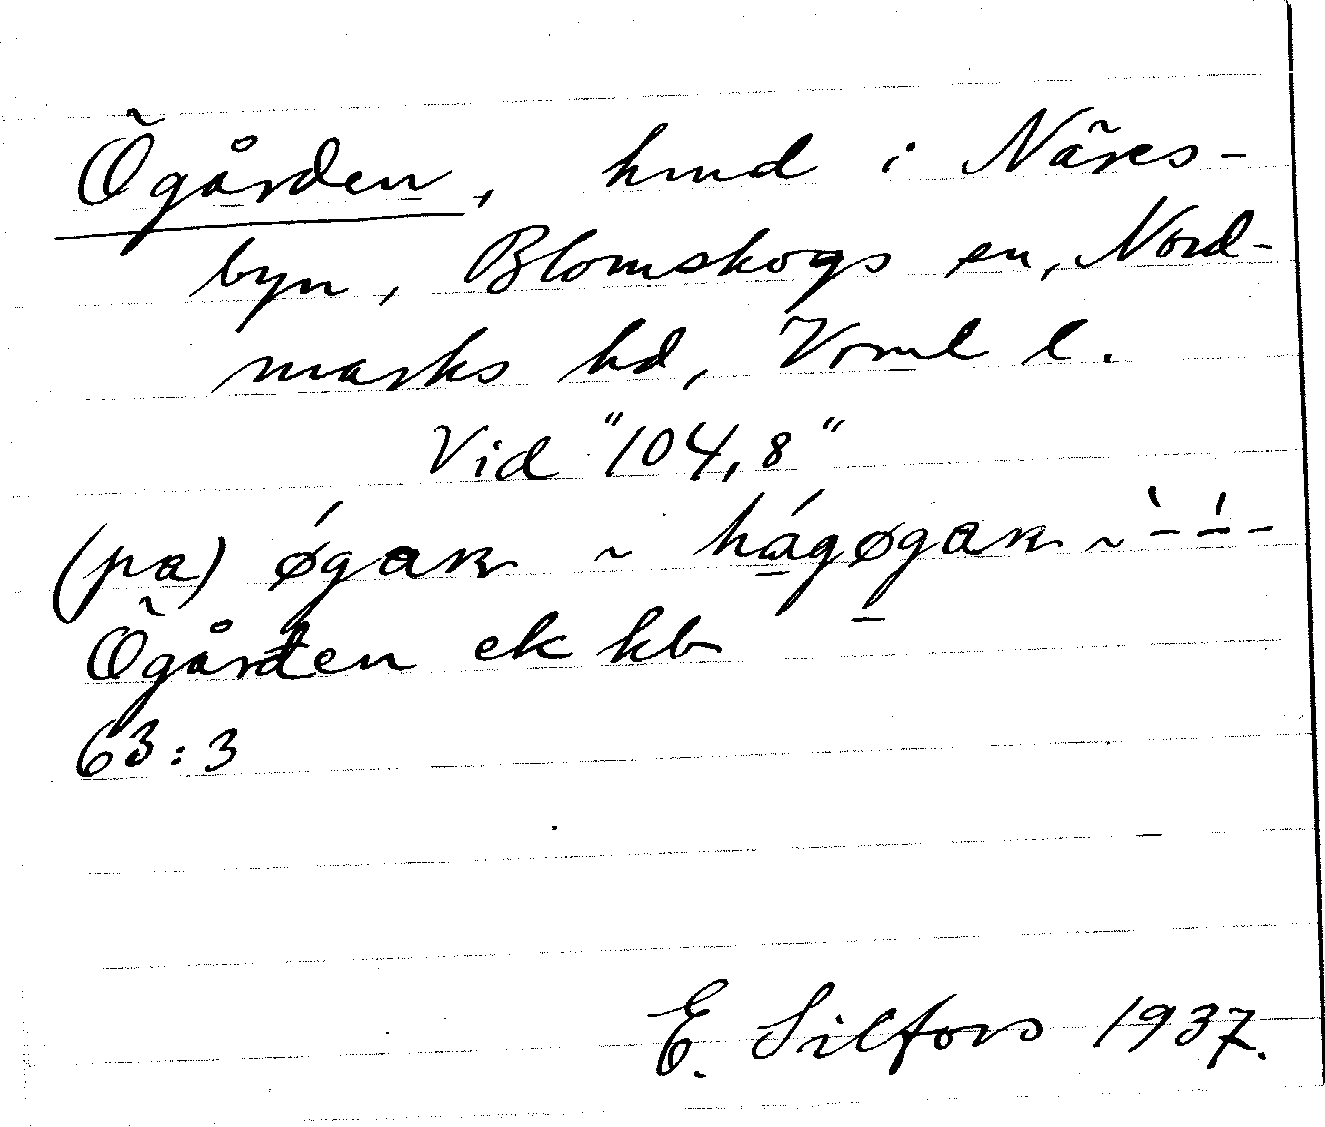 Ögården, hmd i Näres-
byn, Blomskogs sn, Nord-
marks hd, Vrml l.
Vid "104,8"
(pa) øgaɴ ~ hágøgaɴ ~ `- ´- -
Ögården ek kb
63:3
E. Silfors 1937.